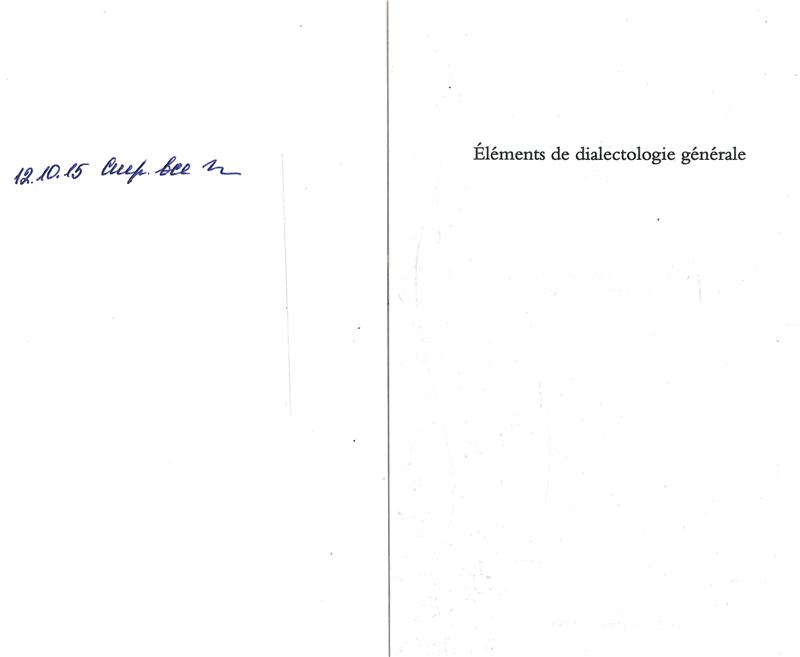 12.10.15 Скир. все
Éléments de dialectologie générale